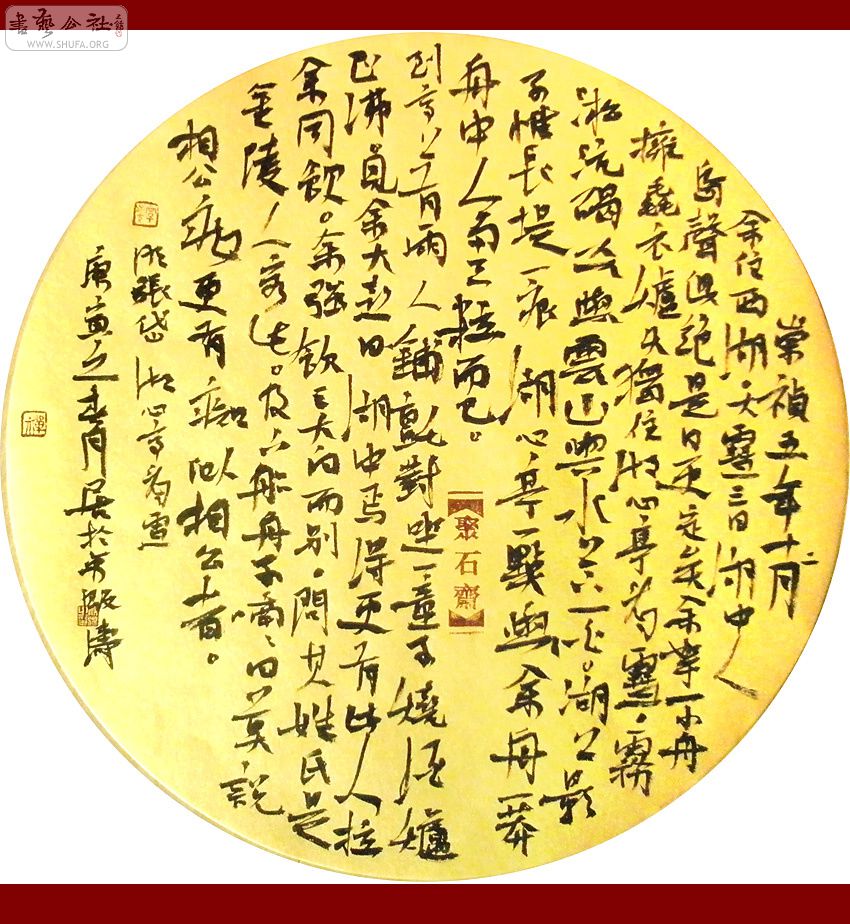 書藝公社
WWW.SHUFA.ORG
崇禎五年十二月
余住西湖。大雪三日湖中人
鳥聲俱絕是日更定矣余拏一小舟
擁毳衣爐火獨往湖心亭看雪。霧
淞沆碭天與雲山與水上下一白。湖上影
子惟長堤一痕湖心亭一點與余舟一芥
舟中人兩三粒而已。
聚石齋
到亭上有兩人鋪氈對坐一童子燒酒爐
正沸見余大喜曰湖中焉得更有此人拉
余同飲。余強飲三大白而別。問其姓氏是
金陵人客此。及下船舟子喃喃曰莫說
相公痴更有痴似相公者。
明張岱湖心亭看雪
庚寅之春月居於振濤